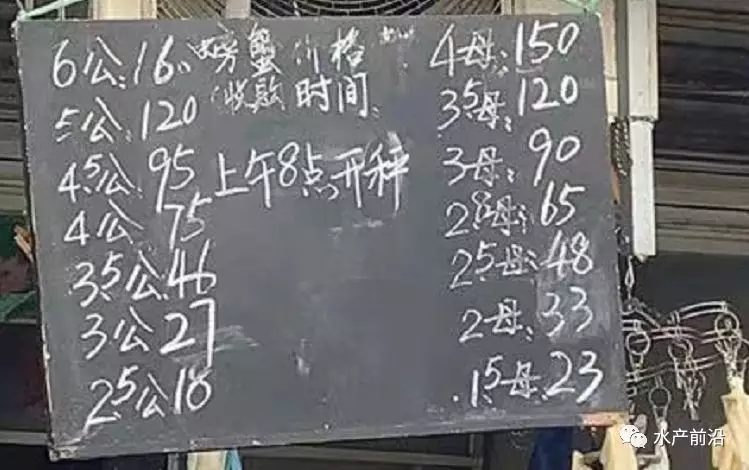 螃蟹价格
收购时间:
上午8点开秤
6公:160
5公:120
4.5公:95
4公75
3.5公:46
3公27
2.5公18
4母:150
3.5母:120
3母:90
2.8母:65
2.5母:48
2母:33
1.5母:23
水产前沿